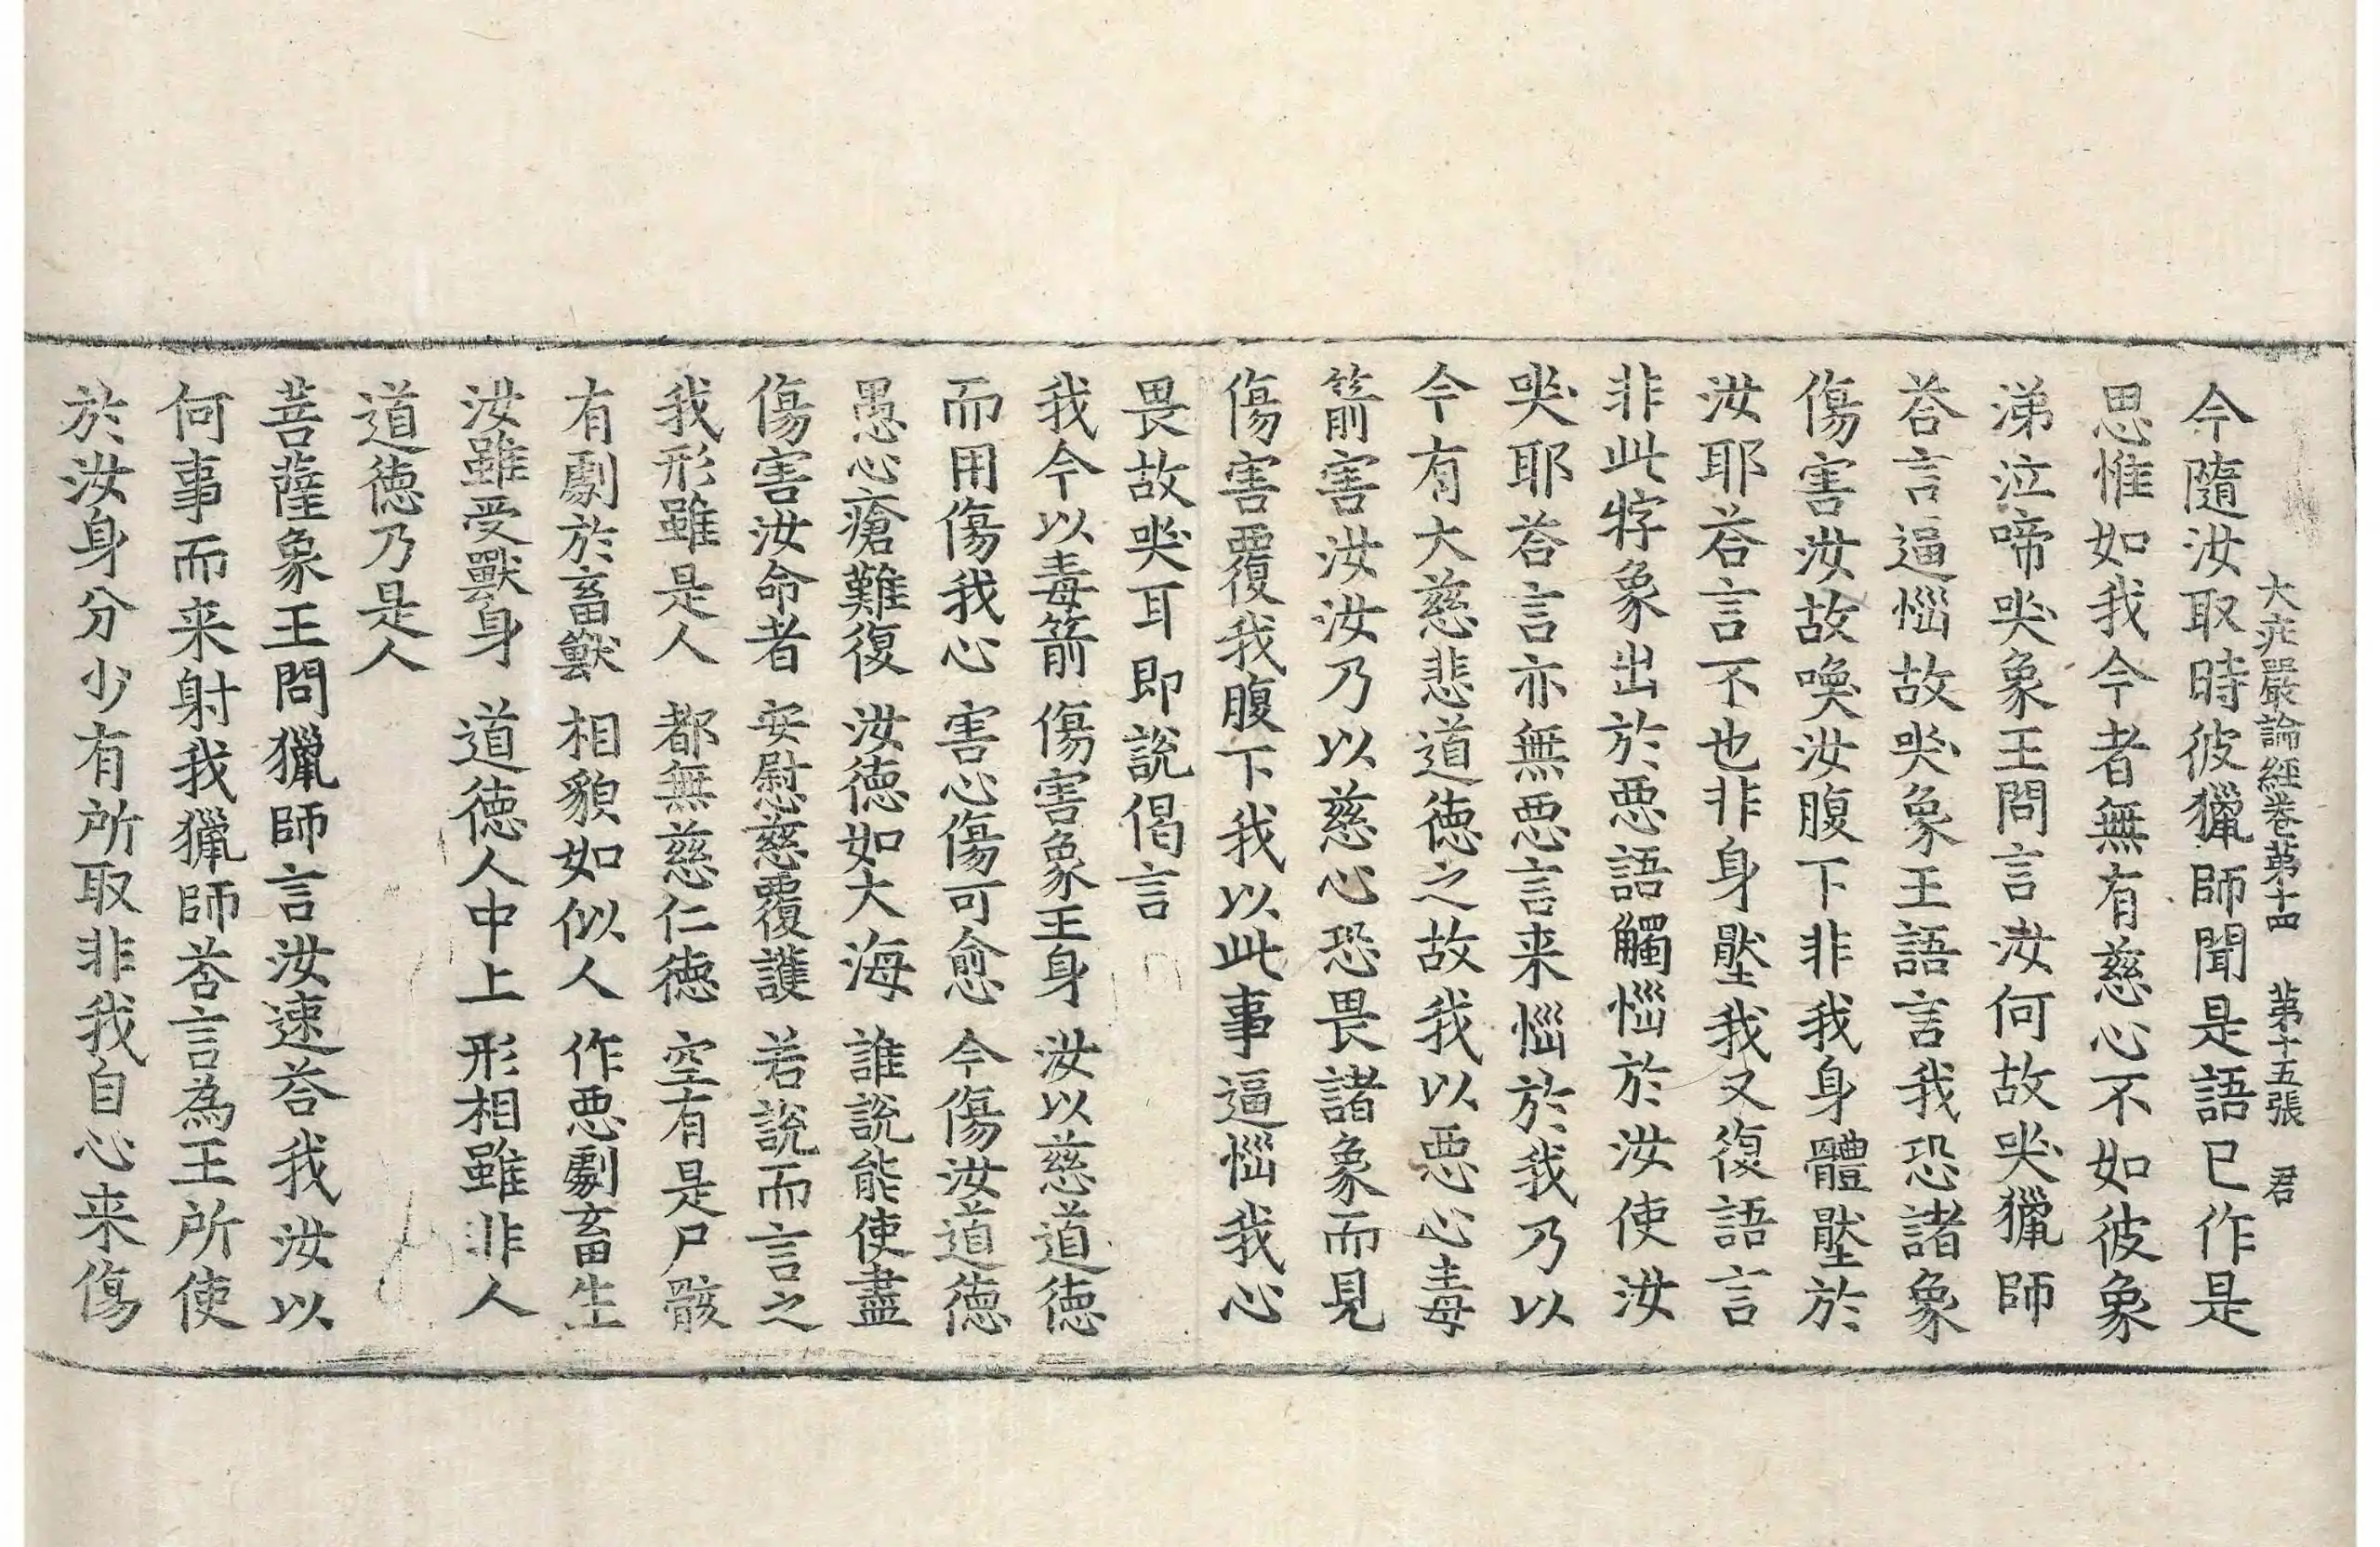 大庄嚴論經卷第十四 第十五張 君
今隨汝取時彼獵師聞是語已作是
思惟如我今者無有慈心不如彼象
涕泣啼哭象王問言汝何故哭獵師
荅言逼惱故哭象王語言我恐諸象
傷害汝故喚汝腹下非我身體墼於
汝耶荅言不也非身墼我又復語言
非此牸象出於惡語觸惱於汝使汝
哭耶荅言亦無惡言来惱於我乃以
今有大慈悲道德之故我以惡心毒
箭害汝汝乃以慈心恐畏諸象而見
傷害覆我腹下我以此事逼惱我心
畏故哭耳即說偈言
我今以毒箭 傷害象王身 汝以慈道德
而用傷我心 害心傷可愈 今傷汝道德
愚心瘡難復 汝德如大海 誰說能使盡
傷害汝命者 安慰慈覆護 若說而言之
我形雖是人 都無慈仁德 空有是尸骸
有劇於畜獸 相貌如似人 作惡劇畜生
汝雖受獸身 道德人中上 形相雖非人
道德乃是人
菩薩象王問獵師言汝速荅我汝以
何事而来射我獵師荅言為王所使
於汝身分少有所取非我自心来傷